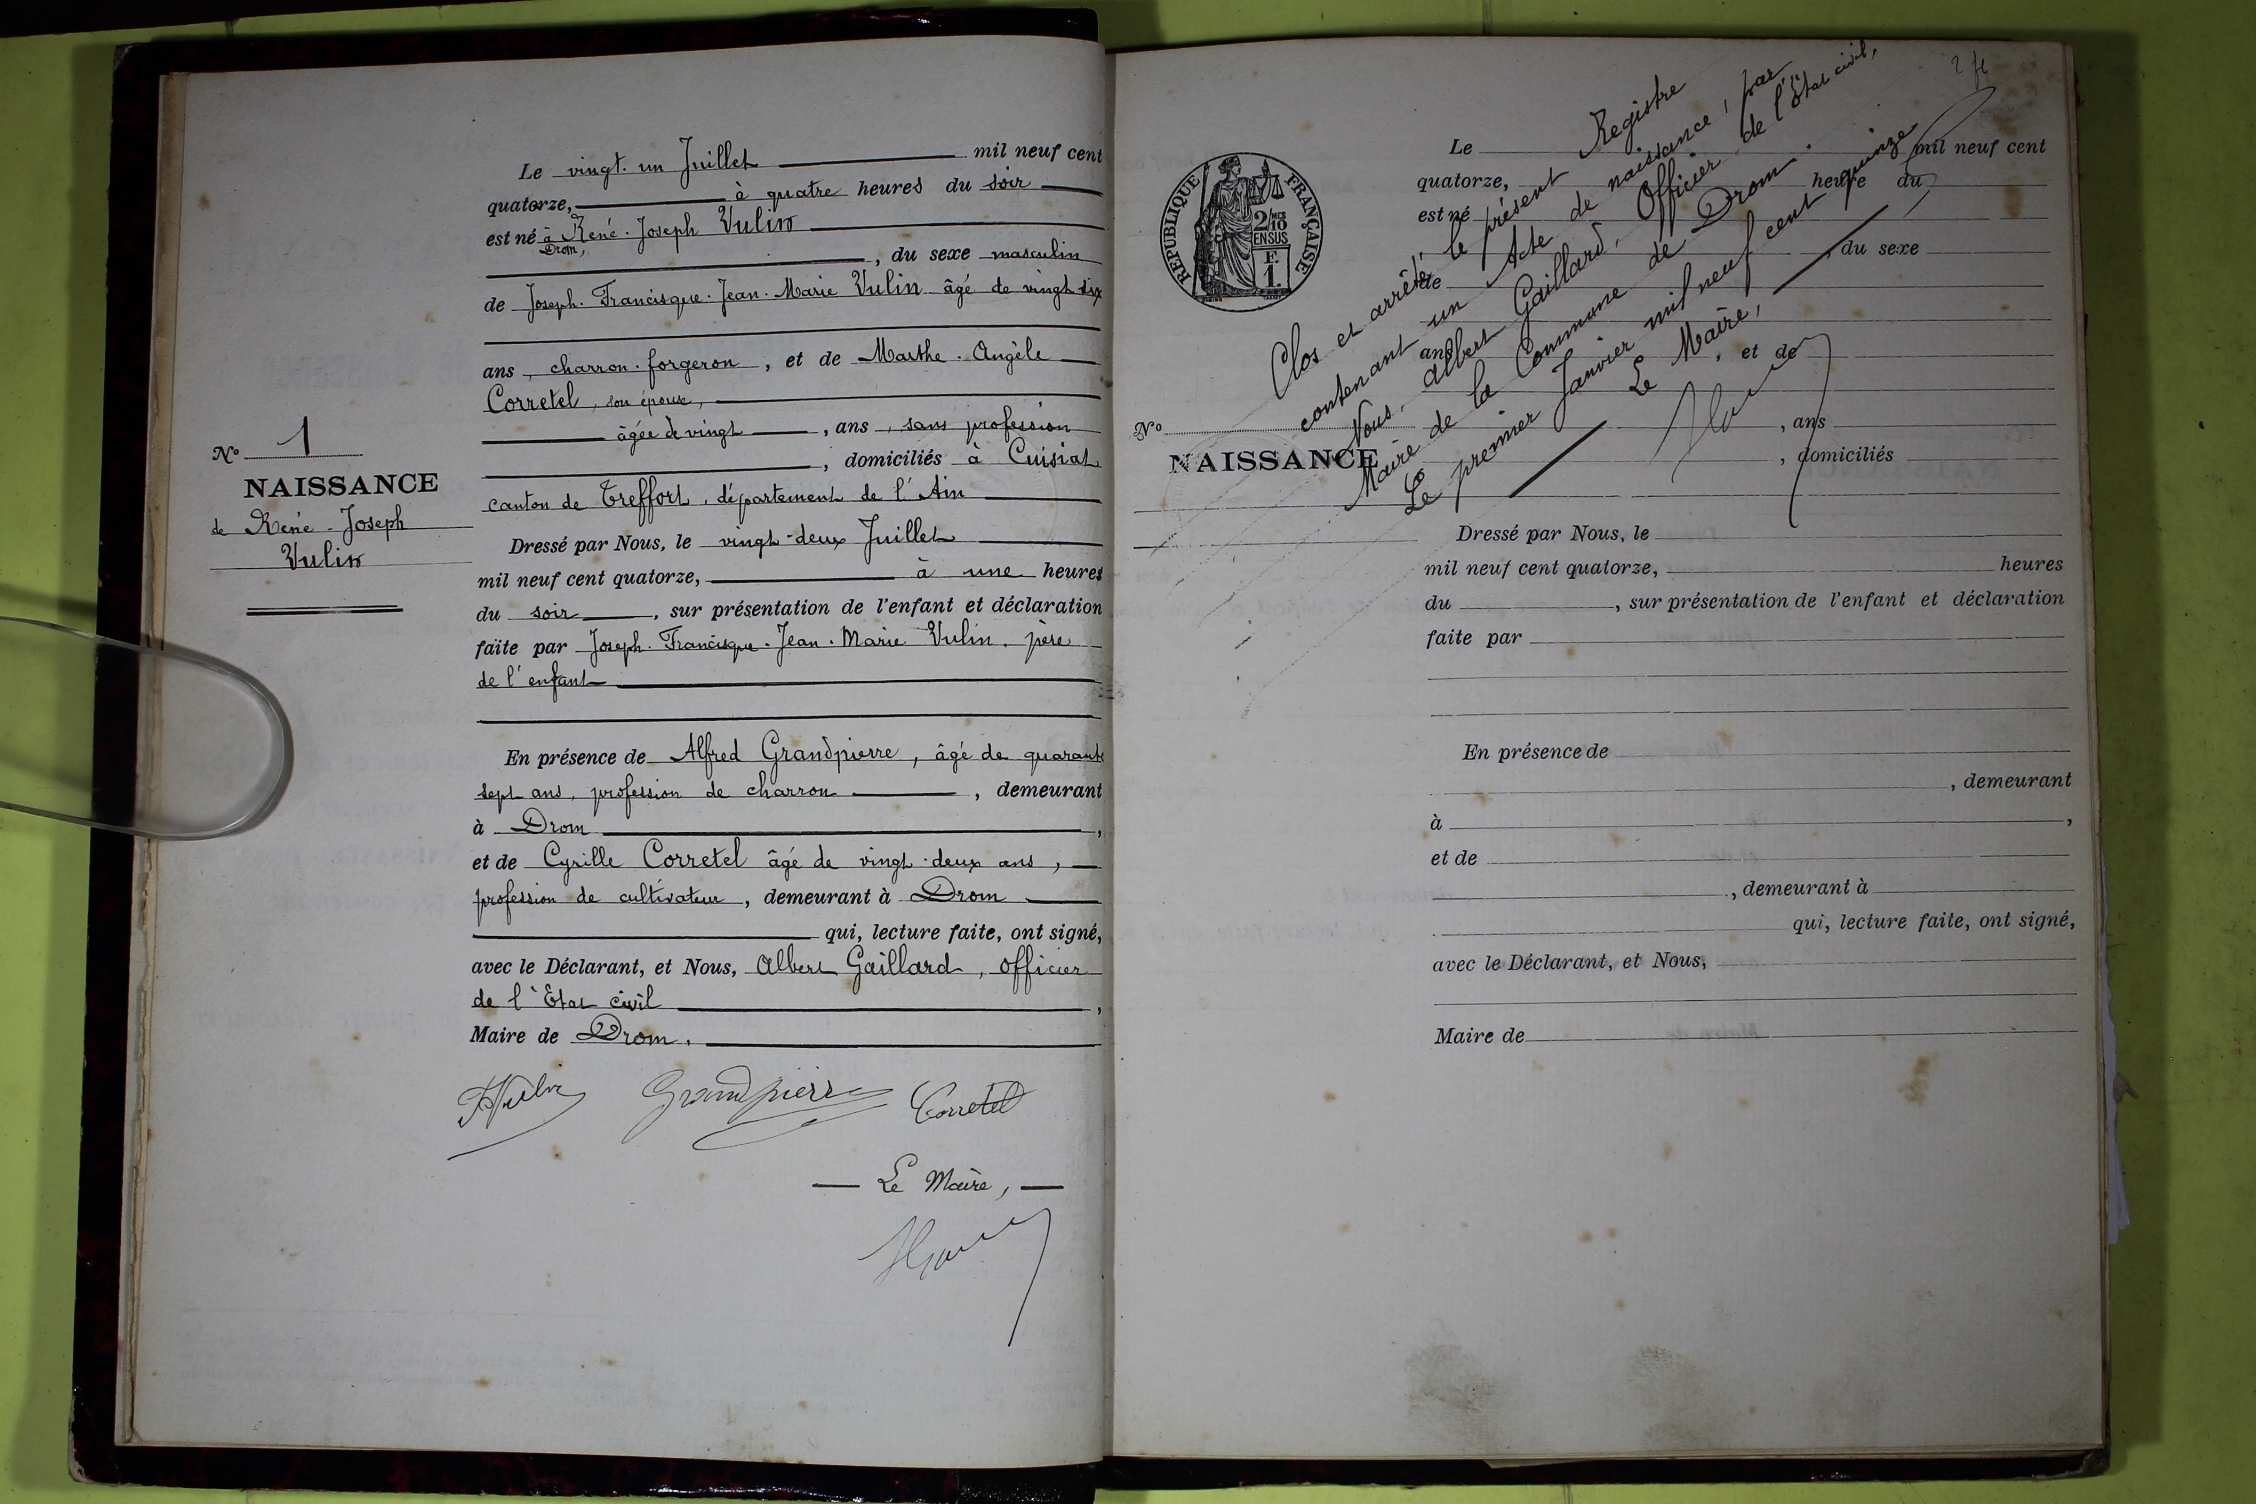 Le vingt. un Juillet mil neuf cent
quatorze, à quatre heures du soir
est né à René. Joseph Vulin
Drom,
, du sexe masculin
de Joseph. Francisque. Jean. Marie Vulin âgé de vingt six
ans, charron. forgeron, et de Marthe. Angèle
Corretel, son épouse,
âgée de vingt, ans, sans profession
, domiciliés à Cuisiat
canton de Treffort, département de l'Ain
Dressé par Nous, le vingt-deux Juillet
mil neuf cent quatorze, à une heures
du soir, sur présentation de l'enfant et déclaration
faite par Joseph. Francisque. Jean. Marie Vulin. père
de l'enfant
En présence de Alfred Grandpierre, âgé de quarante
sept ans, profession de charron, demeurant
à Drom,
et de Cyrille Corretel âgé de vingt-deux ans,
profession de cultivateur, demeurant à Drom
qui, lecture faite, ont signé,
avec le Déclarant, et Nous, Albert Gaillard, officier
de l'État civil,
Maire de Drom.
Grandpierre Corretel
Le Maire,
No 1
NAISSANCE
de René - Joseph
Vulin
RÉPUBLIQUE FRANÇAISE
2/10
EN SUS
F.
1.
Clos et arrêté le présent Registre
contenant un Acte de naissance, par
Nous, Albert Gaillard, Officier de l'État civil,
Maire de la Commune de Drom.
Le premier Janvier mil neuf cent quinze
Le Maire,
No
NAISSANCE
Le mil neuf cent
quatorze, heure du
est né
, du sexe
de
ans, et de
, ans
, domiciliés
Dressé par Nous, le
mil neuf cent quatorze, heures
du, sur présentation de l'enfant et déclaration
faite par
En présence de
, demeurant
à,
et de
, demeurant à
qui, lecture faite, ont signé,
avec le Déclarant, et Nous,
Maire de